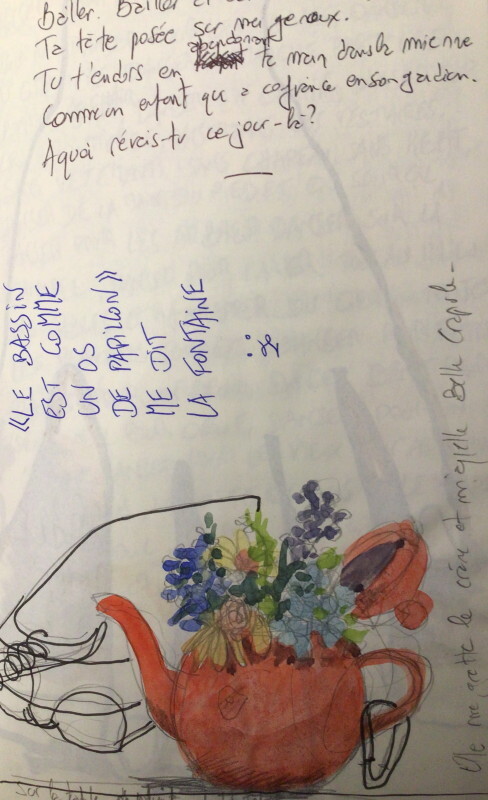 Bâiller. Bâiller
Ta tête posée sur mes genoux.
Tu t'endors en abandonnant ta main dans la mienne
Comme un enfant qui a confiance en son gardien.
A quoi rêvais-tu ce jour-là?
«LE BASSIN
EST COMME
UN OS
DE PAPILLON»
ME DIT
LA FONTAINE
Elle me gratte le crâne et m'appelle Belle Crapule-
Sur la table